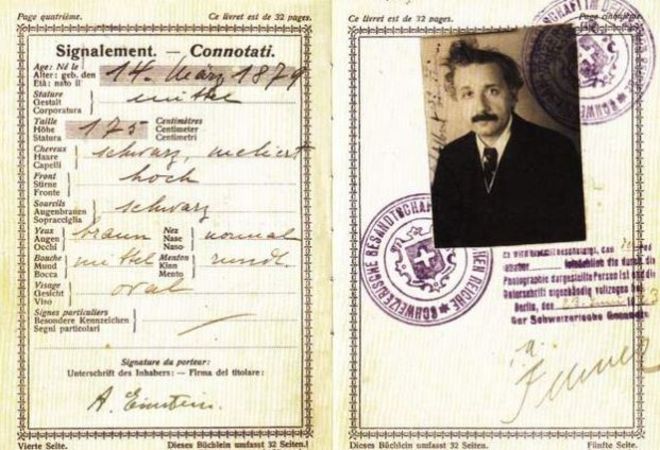 Page quatrième. Ce livret est de 32 pages.
Signalement. — Connotati.
Age: Né le
Alter: geb. den 14. März 1879
Età: nato il
Stature
Gestalt mittel
Corporatura
Taille Centimètres
Höhe 175 Centimeter
Statura Centimetri
Cheveux
Haare schwarz, meliert
Capelli
Front
Stirne hoch
Fronte
Sourcils
Augenbrauen schwarz
Sopracciglia
Yeux Nez
Augen braun Nase normal
Occhi Naso
Bouche Menton
Mund mittel Kinn rund.
Bocca Mento
Visage
Gesicht oval
Viso
Signes particuliers
Besondere Kennzeichen
Segni particolari
Signature du porteur:
Unterschrift des Inhabers: — Firma del titolare:
A. Einstein.
Vierte Seite. Dieses Büchlein umfasst 32 Seiten.
Ce livret est de 32 pages. Page cinquième.
SCHWEIZERISCHE GESANDTSCHAFT IM DEUTSCHEN REICHE
Es wird hiermit bescheinigt, dass
Inhaber die durch die
Photographie dargestellte Person ist und die
Unterschrift eigenhändig vollzogen hat
Berlin, den
Der Schweizerische Gesandte
i. a.
Dieses Büchlein umfasst 32 Seiten. Fünfte Seite.